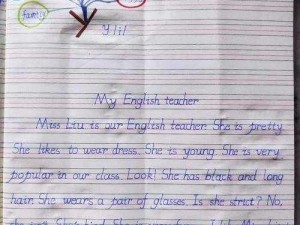 family
My English teacher
Miss Liu is our English teacher. She is pretty.
She likes to wear dress. She is young. She is very
popular in our class. Look! She has black and long
hair. She wears a pair of glasses. Is she strict? No,
she isn't. She's kind. She is